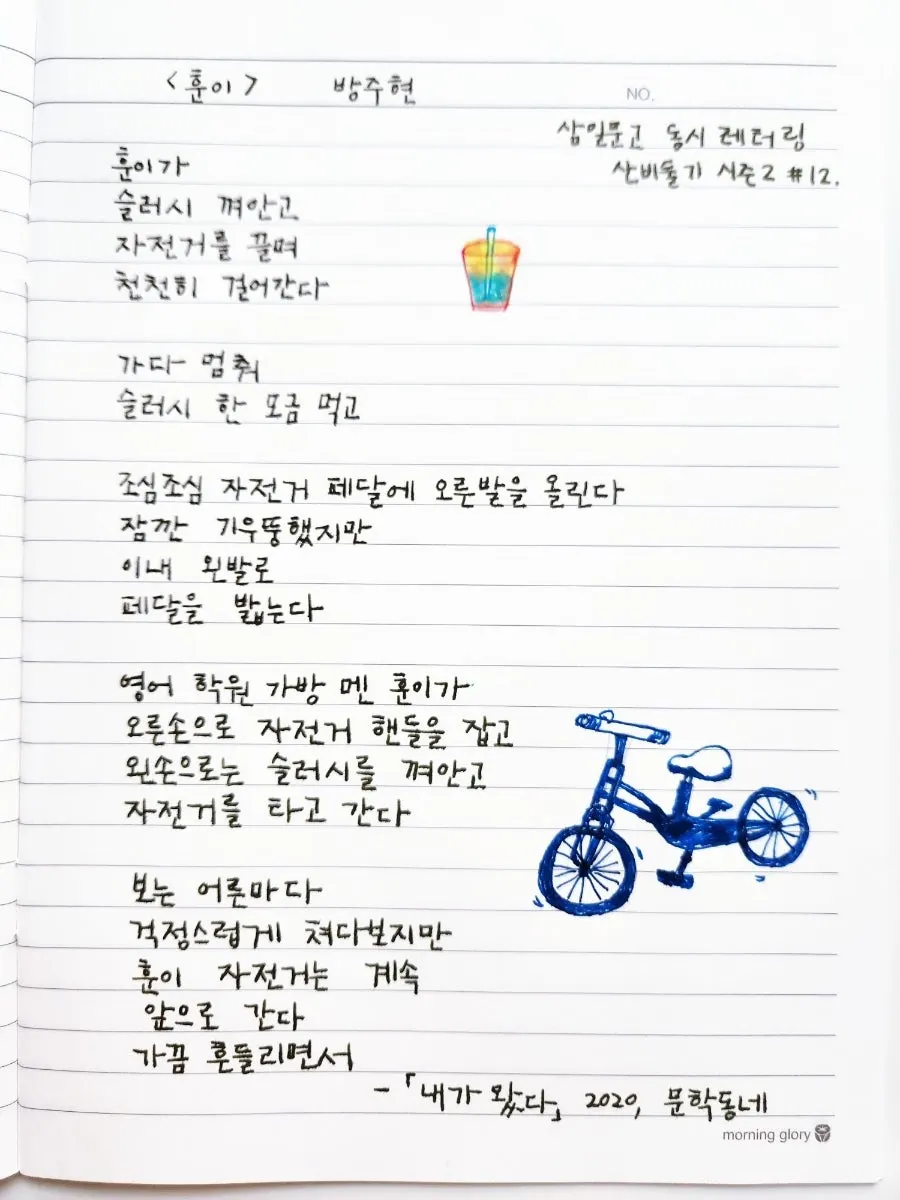 <훈이> 방주현
NO.
삼일문고 동시 레터링
산비둘기 시즌2 #12.
훈이가
슬러시 껴안고
자전거를 끌며
천천히 걸어간다
가다 멈춰
슬러시 한 모금 먹고
조심조심 자전거 페달에 오른발을 올린다
잠깐 기우뚱했지만
이내 왼발로
페달을 밟는다
영어 학원 가방 멘 훈이가
오른손으로 자전거 핸들을 잡고
왼손으로는 슬러시를 껴안고
자전거를 타고 간다
보는 어른마다
걱정스럽게 쳐다보지만
훈이 자전거는 계속
앞으로 간다
가끔 흔들리면서
-「내가 왔다」 2020, 문학동네
morning glory